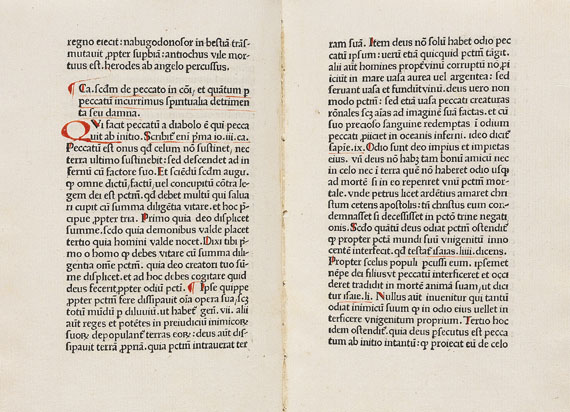 regno eiecit: nabugodonosor in bestiā trāſ-
mutauit ꝓpter ſupbiā: antiochus vile mor-
tuus eſt. herodes ab angelo percuſſus.
¶ Ca. ſcḋm de peccato in cōi, et quātum p
peccatū incurrimus ſpiritualia detrimen
ta ſeu damna.
QVi facit peccatū a diabolo ē qui pecca
uit ab initio. Scribit᷑ eni pma io. iii. ca.
Peccatū eſt onus qḋ celum nō ſuſtinet, nec
terra ultimo ſuſtinebit: ſed deſcendet ad in
fernū cū factore ſuo. Et ſciēdū ſcḋm augu.
ꝙ omne dictū, factū, uel concupitū cōtra le
gem dei eſt pctm̄. qḋ debet multū qui ſalua
ri cupit cū ſumma diligētia vitare. et hoc p̄-
cipue ꝓpter tria. Primo quia deo diſplicet
ſumme. ſcḋo quia demonibus valde placet
tertio quia homini valde nocet. Dixi tibi p̄-
mo o homo ꝙ debes vitare cū ſumma dili
gentia om̄e pctm̄. quia deo creatori tuo sū-
me diſplicet. et ad hoc debes cogitare quid
deus fecerit ꝓpter odiū pcti. ¶ Ipſe quippe
ꝓpter pctm̄ fere diſſipauit oīa opera ſua, ſcꝫ
totū mūdū p diluuiū. ut habet᷑ gen̄. vii. alii
aūt reges et potētes in preiudiciū inimicoꝝ
ſuoꝝ depopulant᷑ terras eoꝝ: deus aūt diſ-
ſipauit terrā ꝓpriā. quia pctm̄ intrauerat ter
ram ſuā. Item deus nō ſolū habet odio pec
catū ipſum: uerūetiā quicquid pctm̄ tāgit.
alii aūt homines propt᷑ vinū corruptū nō p̄-
iiciūt in mare uaſa aurea uel argentea: ſed
ſeruant uaſa et fundūt vinū. deus uero non
modo pctm̄: ſed etiā uaſa peccati creaturas
rōnales ſcꝫ aḋ imaginē ſuā factas. et cū
ſuo precioſo ſanguine redemptas i odium
peccati ꝓiiciet in oceanis inferni. ideo dicit᷑
ſapie. ix. Odio ſunt deo impius et impietas
eius. vn̄ deus nō habꝫ tam bonū amicū nec
in celo nec i terra quē nō haberet odio uſqꝫ
ad mortē ſi in eo reperiret vnū pctm̄ mor-
tale. vnde petrus licet ardētius amaret chri
ſtum cetens apoſtolis: tn̄ chriſtus eum con-
demnaſſet ſi deceſſiſſet in pctō trine negati
onis. Scḋo quātū deus odiat pctm̄ oſtendit᷑
ꝙ propter pctā mundi ſuū vnigenitū inno
centē interfecit. qḋ teſtat᷑ iſaias. liii. dicens.
Propter ſcelus populi ꝑcuſſi eum. ipſemet
nēpe dei filius vt peccatū interficeret et occi
deret tradidit in mortē animā ſuam, ut dici
tur iſaie. li. Nullus aūt inuenitur qui tantū
odiat inimicū ſuum ꝙ in odio eius uellet in
terficere vnigenitum proprium. Tertio hoc
idem oſtendit᷑. quia deus pſecutus eſt pecca
tum ab initio intantū: ꝙ proiecit eū de celo